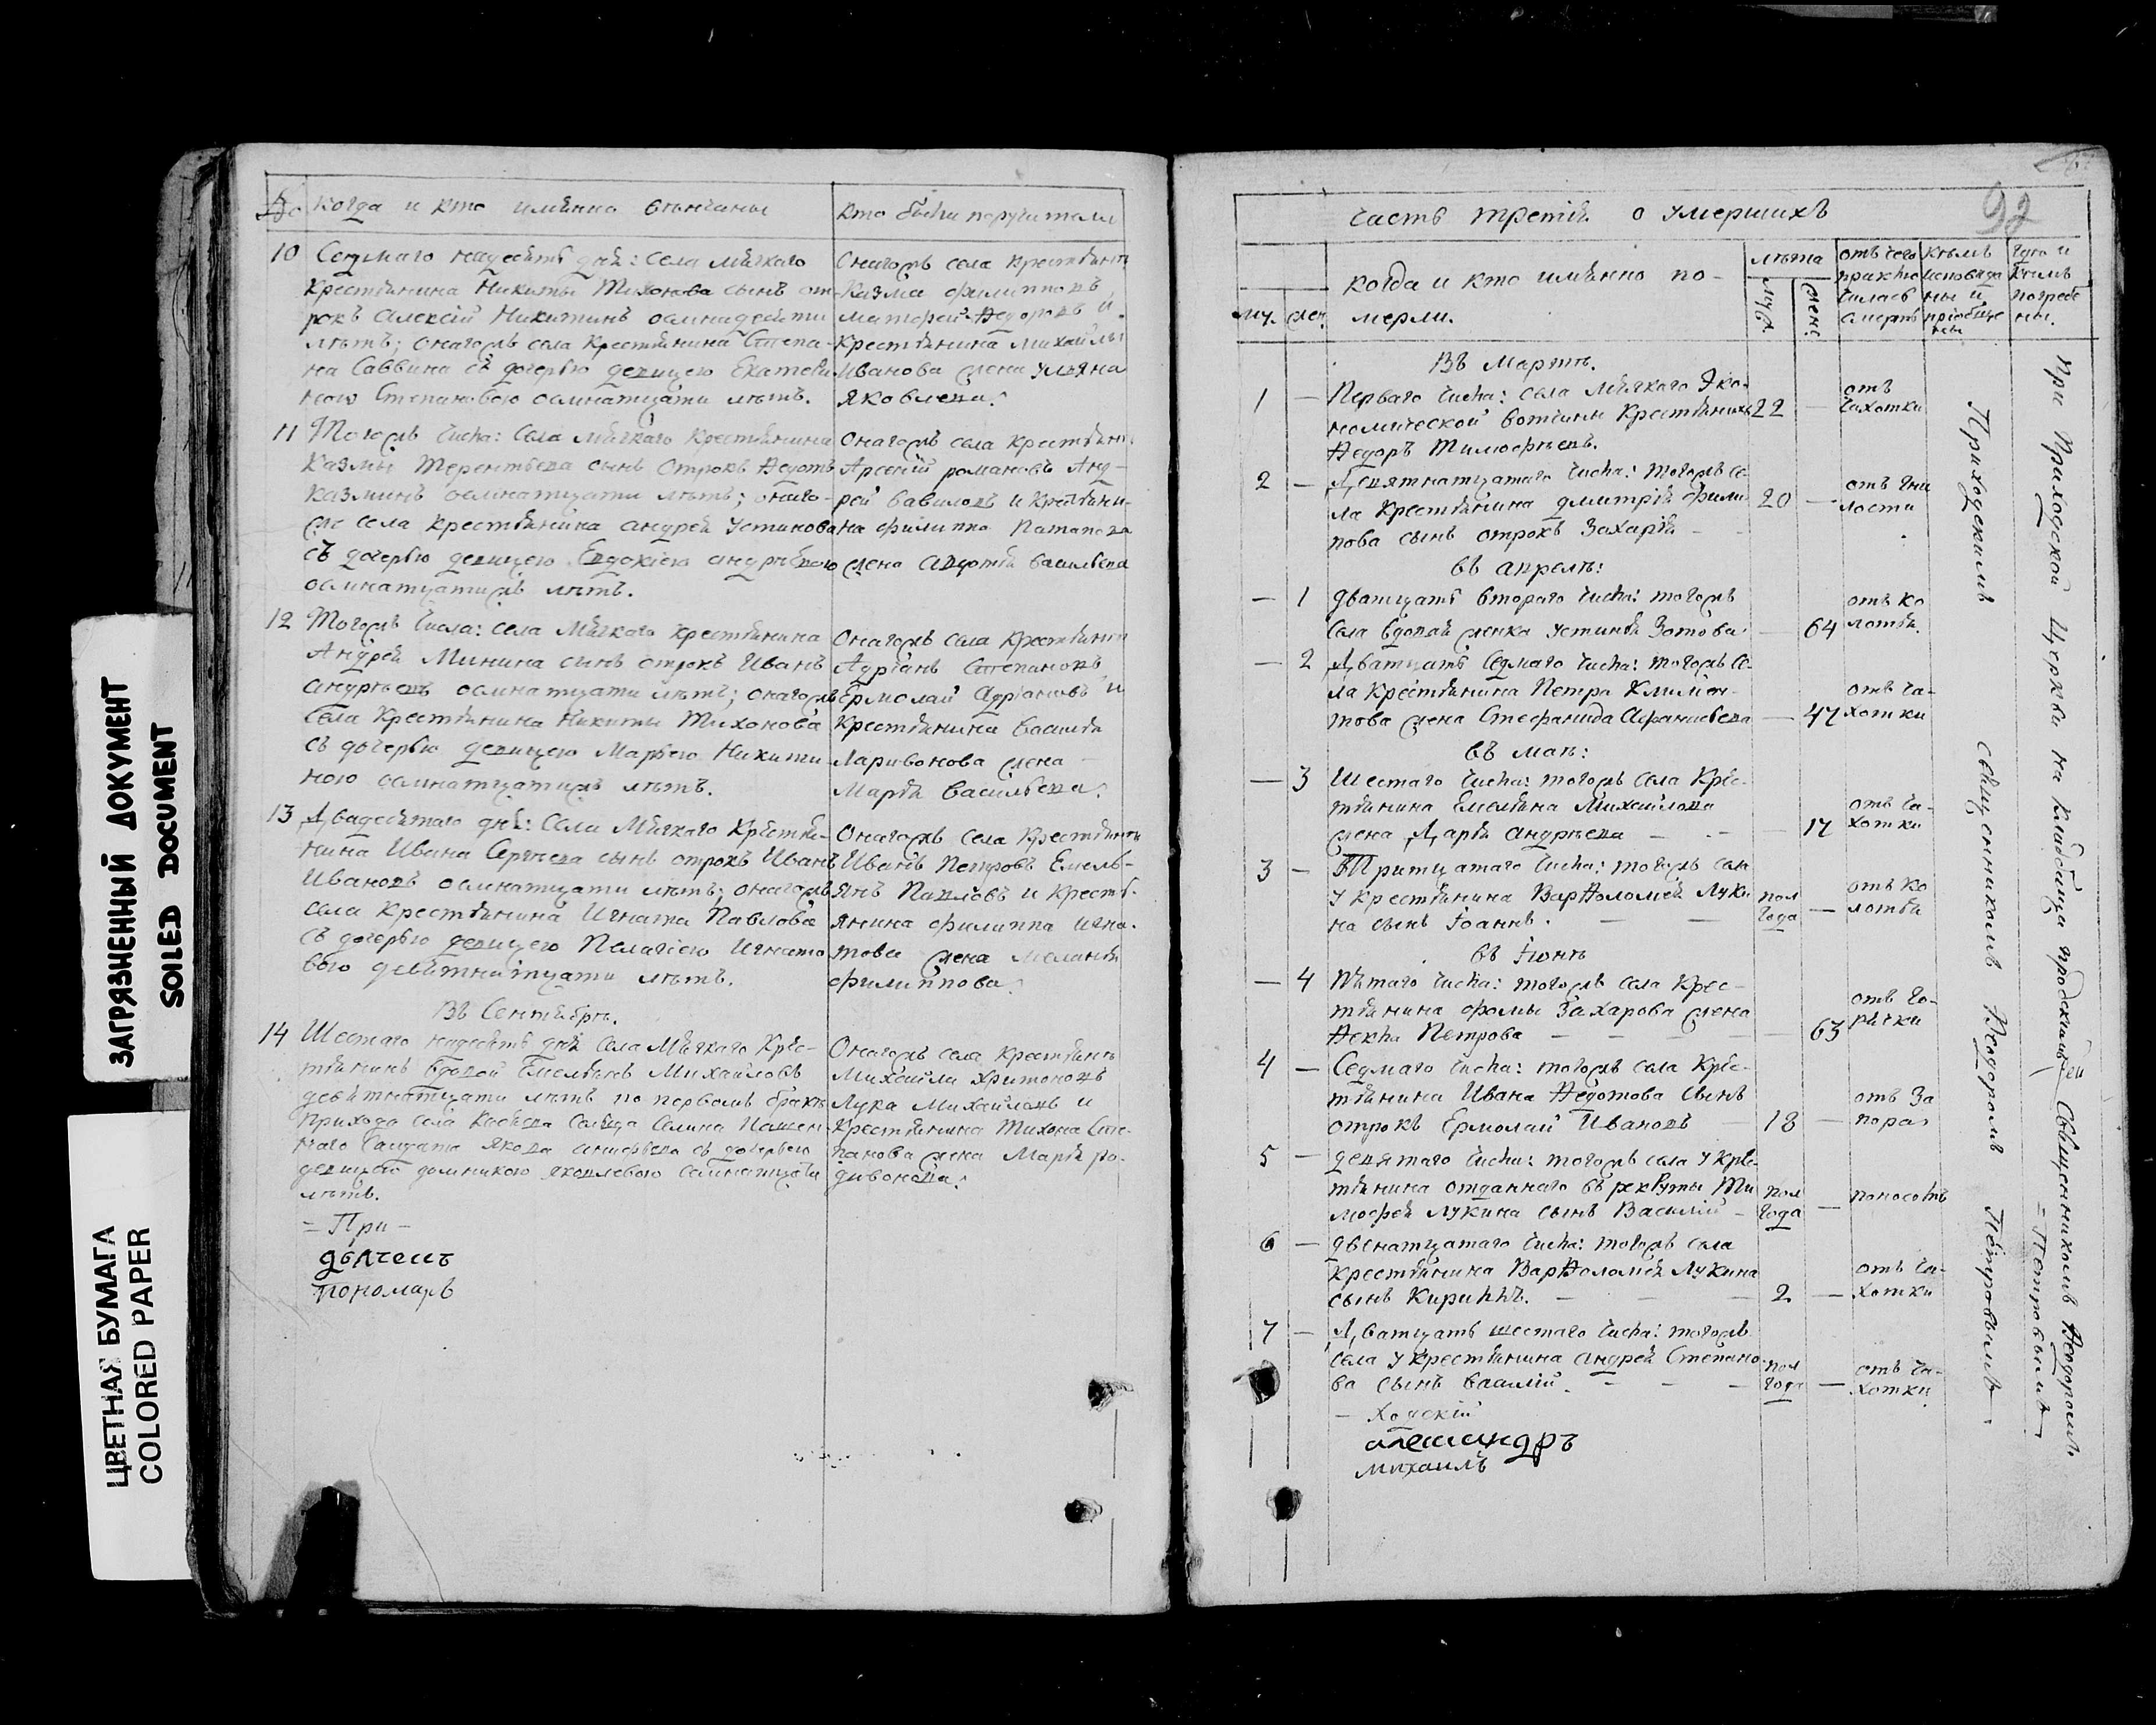 ЗАГРЯЗНЕННЫЙ ДОКУМЕНТ
SOILED DOCUMENT
ЦВЕТНАЯ БУМАГА
COLORED PAPER
когда и кто имянно венчаны
кто были поручители
10 Седмаго надесять дня: села Мягкаго
крестьянина Никиты Тихонова сынъ от-
рокъ Алексiй Никитинъ осмнадесяти
летъ; онагожъ села крестьянина Степа-
на Саввина съ дочерью девицею Екатери-
ною Степановою осмнатцати летъ.
Онагожъ села крестьяни
Казма Филипповъ
Матфей Ѳедоровъ и
крестьянина Михайлы
Иванова жена Ульяна
Яковлева.
11 Тогожъ числа: села Мягкаго крестьянина
Казмы Терентьева сынъ отрокъ Ѳедотъ
Казминъ осмнатцати летъ; онаго-
же села крестьянина Андрея Устинова
съ дочерью девицею Евдокiею Андреевою
осмнатцатижъ летъ.
Онагожъ села крестьяни
Арсенiй Романовъ Анд-
рей Вавиловъ и крестьяни-
на Филиппа Патапова
жена Авдотья Васильева
12 Тогожъ числа: села Мягкаго крестьянина
Андрея Минина сынъ отрокъ Иванъ
Андреевъ осмнатцати летъ; онагожъ
села крестьянина Никиты Тихонова
съ дочерью девицею Марьею Никити-
ною осмнатцатижъ летъ.
Онагожъ села крестьяни
Адрiанъ Степановъ
Ермолай Адрiановъ и
крестьянина Василья
Ларивонова жена
Марья Васильева.
13 Двадесятаго дня: села Мягкаго крестья-
нина Ивана Сергеева сынъ отрокъ Иванъ
Ивановъ осмнатцати летъ; онагожъ
села крестьянина Игната Павлова
съ дочерью девицею Пелагiею Игнато
вою девятнатцати летъ.
Онагожъ села крестьяни
Иванъ Петровъ Емель-
янъ Павловъ и кресть-
янина Филиппа Игна-
това жена Меланья
Филиппова.
Въ Сентябре.
14 Шестаго надесять дня села Мягкаго крес-
тьянинъ вдовой Емельянъ Михайловъ
девятнатцати летъ по первомъ браке
прихода села
Салдата Якова съ дочерью
девицею Домникою Яковлевою
летъ.
Онагожъ села крестьянъ
Михайла Харитоновъ
Лука Михайловъ и
крестьянина Тихона Сте-
панова жена Марья Ро-
дивонова.
= При -
дьячекъ
пономарь
92
часть третiя о умершихъ
му.
жен.
когда и кто имянно по-
мерли.
лета
муж
женс
отъ чего
приклю
чилась
смерть
кемъ
исповеда
ны и
прiобще
ны
где и
кемъ
погребе
ны.
Въ Марте.
1 — Перваго числа: села Мягкаго Эко-
номической вотчины крестьянинъ
Ѳедоръ Тимофеевъ.
22 —
отъ
чихотки
2 — Девятнатцатаго числа: тогожъ се-
ла крестьянина Дмитрiя Фили
пова сынъ отрокъ Захарiй
20 —
отъ гни
лости
въ апреле:
— 1 Дватцать втораго числа: тогожъ
села вдовая женка Устинья Зотова.
— 64
отъ ко
лотья.
— 2 Дватцать седмаго числа: тогожъ се-
ла крестьянина Петра Климен-
това жена Стефанида Афанасьева
— 47
отъ ча-
хотки
въ мае:
— 3 Шестаго числа: тогожъ села крес-
тьянина Емельяна Михайлова
жена Дарья Андреева
— 17
отъ ча-
хотки
3 — Тритцатаго числа: тогожъ села
у крестьянина Варѳоломея Луки
на сынъ Iоаннъ.
пол
года —
отъ ко
лотья
въ Iюне
— 4 Пятаго числа: тогожъ села крес-
тьянина Фомы Захарова жена
Ѳекла Петрова
— 63
отъ го-
рячки
4 — Седмаго числа: тогожъ села крес-
тьянина Ивана Ѳедотова сынъ
отрокъ Ермолай Ивановъ
18 —
отъ за
пора
5 — Девятаго числа: тогожъ села у крес-
тьянина отданнаго въ рекруты Ти
мофея Лукина сынъ Василiй
пол
года —
поносомъ
6 — Двенатцатаго числа: тогожъ села
крестьянина Варѳоломея Лукина
сынъ Кириллъ.
2 —
отъ ча-
хотки
7 — Дватцать шестаго числа: тогожъ
села у крестьянина Андрея Степано
ва сынъ Василiй.
пол
года —
отъ ча-
хотки
Приходскимъ священникомъ Ѳеодоромъ Петровымъ
При приходской церкви на кладбище приходскимъ священникомъ Ѳеодоромъ
= Петровымъ
— ходскiй
Александръ
Михаилъ